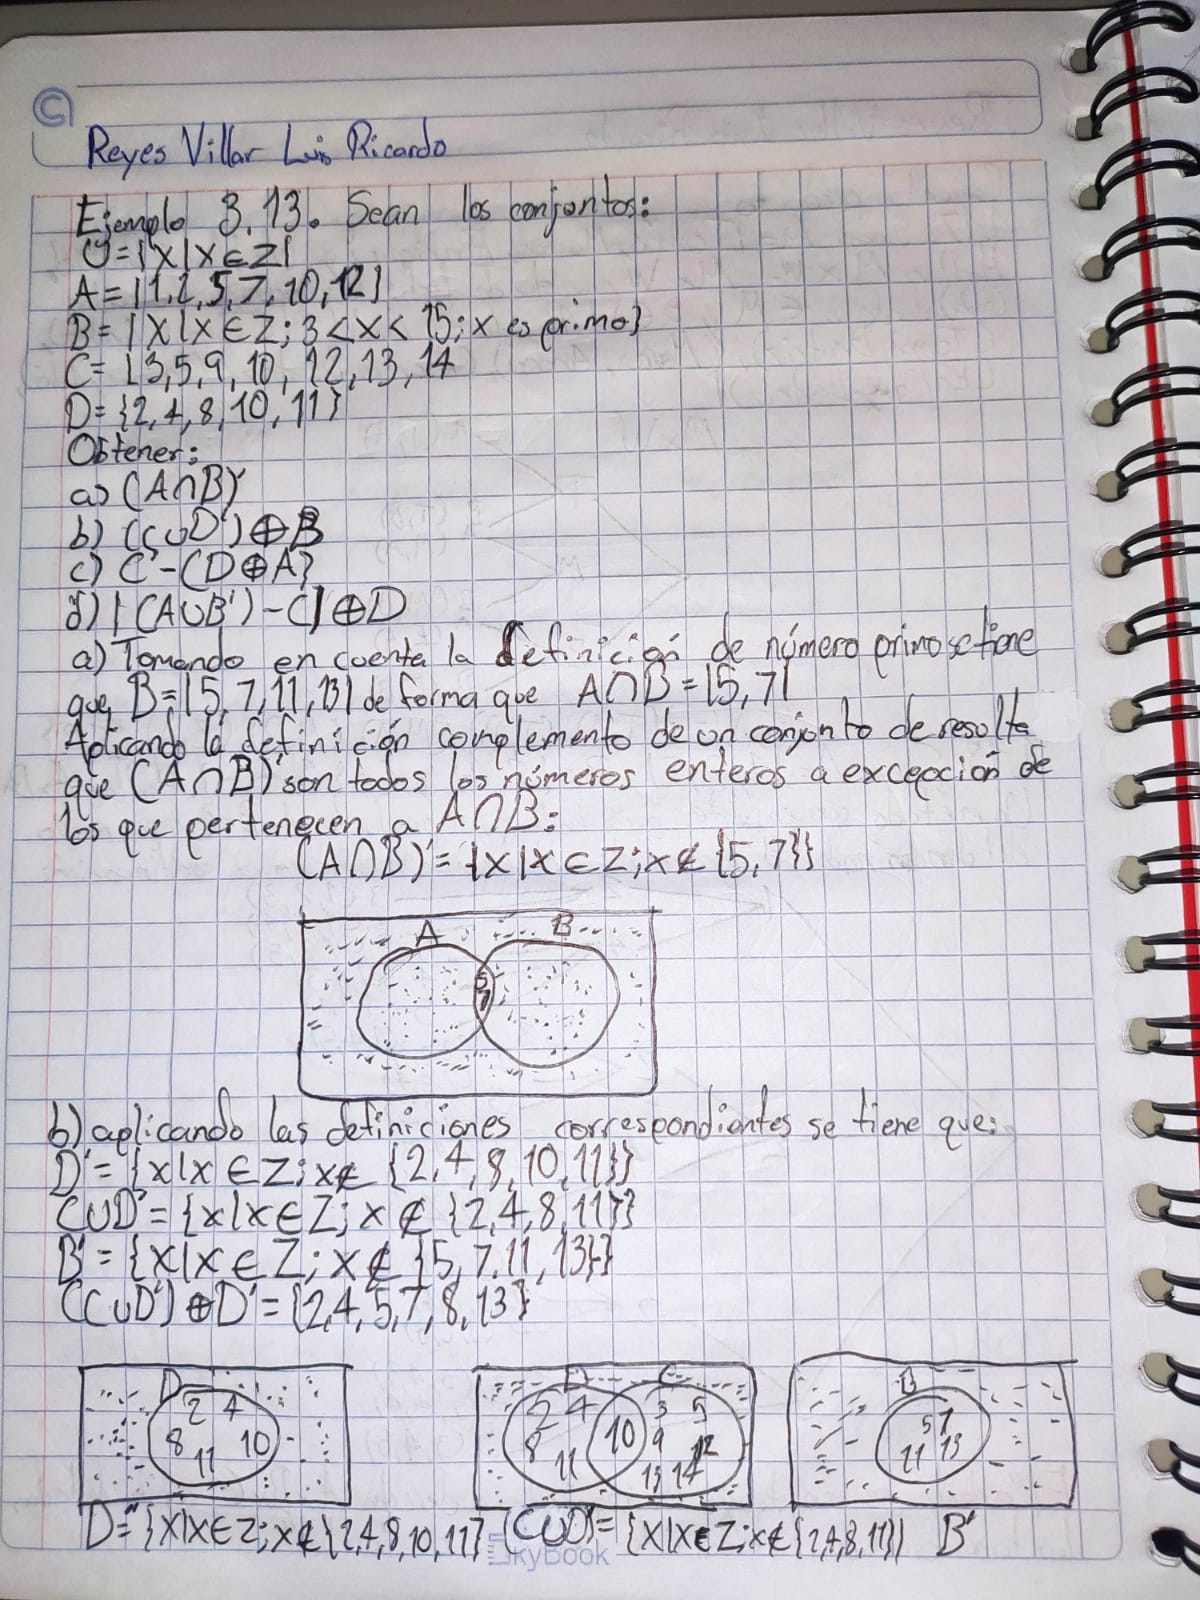 Reyes Villar Luis Ricardo
Ejemplo 3.13. Sean los conjontos:
U={x|x∈Z}
A={1,2,5,7,10,12}
B={x|x∈Z; 3<x<15; x es primo}
C={3,5,9,10,12,13,14
D={2,4,8,10,11}
Obtener:
a) (A∩B)'
b) (C∪D')⊕B
c) C'-(D⊕A)
d) |(A∪B')-C|⊕D
a) Tomando en cuenta la definición de número primo se tiene
que B={5,7,11,13} de forma que A∩B={5,7}
Aplicando la definición complemento de un conjonto de resulta
que (A∩B)' son todos los números enteros a excepción de
los que pertenecen a A∩B:
(A∩B)'={x|x∈Z; x∉{5,7}}
A B
5
7
b) aplicando las definiciones correspondientes se tiene que:
D'={x|x∈Z; x∉{2,4,8,10,11}}
C∪D'={x|x∈Z; x∉{2,4,8,11}}
B'={x|x∈Z; x∉{5,7,11,13}}
(C∪D')⊕D'={2,4,5,7,8,13}
D
2 4
8 10
11
D C
2 4 3 5
8 10 9 12
11 13 14
B
5 7
11 13
D'={x|x∈Z; x∉{2,4,8,10,11} (C∪D)'={x|x∈Z; x∉{2,4,8,11}} B'
SkyBook